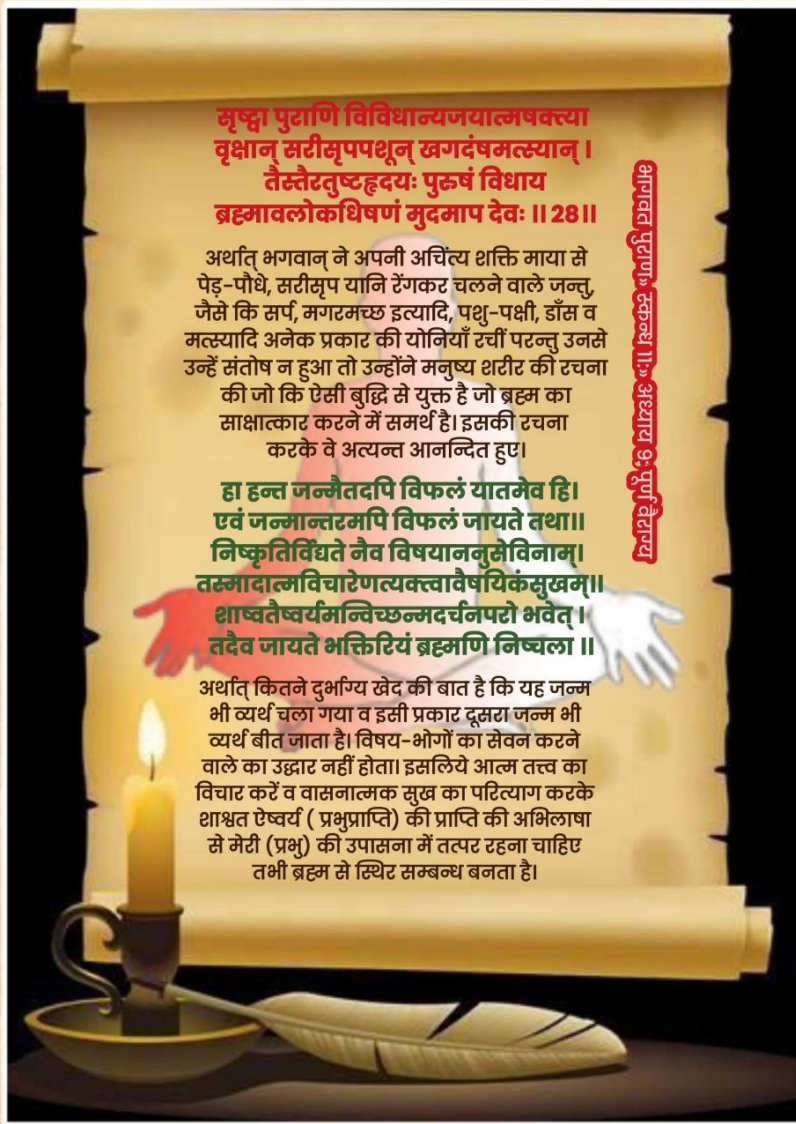 सृष्ट्वा पुराणि विविधान्यजयात्मषक्त्या
वृक्षान् सरीसृपपशून् खगदंषमत्स्यान् ।
तैस्तैरतुष्टहृदयः पुरुषं विधाय
ब्रह्मावलोकधिषणं मुदमाप देवः ॥ 28॥
अर्थात् भगवान् ने अपनी अचिंत्य शक्ति माया से
पेड़-पौधे, सरीसृप यानि रेंगकर चलने वाले जन्तु,
जैसे कि सर्प, मगरमच्छ इत्यादि, पशु-पक्षी, डाँस व
मत्स्यादि अनेक प्रकार की योनियाँ रचीं परन्तु उनसे
उन्हें संतोष न हुआ तो उन्होंने मनुष्य शरीर की रचना
की जो कि ऐसी बुद्धि से युक्त है जो ब्रह्म का
साक्षात्कार करने में समर्थ है। इसकी रचना
करके वे अत्यन्त आनन्दित हुए।
हा हन्त जन्मैतदपि विफलं यातमेव हि।
एवं जन्मान्तरमपि विफलं जायते तथा॥
निष्कृतिर्विद्यते नैव विषयाननुसेविनाम्।
तस्मादात्मविचारेणत्यक्त्वावैषयिकंसुखम्॥
शाष्वतैष्वर्यमन्विच्छन्मदर्चनपरो भवेत् ।
तदैव जायते भक्तिरियं ब्रह्मणि निष्चला ॥
अर्थात् कितने दुर्भाग्य खेद की बात है कि यह जन्म
भी व्यर्थ चला गया व इसी प्रकार दूसरा जन्म भी
व्यर्थ बीत जाता है। विषय-भोगों का सेवन करने
वाले का उद्धार नहीं होता। इसलिये आत्म तत्त्व का
विचार करें व वासनात्मक सुख का परित्याग करके
शाश्वत ऐष्वर्य ( प्रभुप्राप्ति) की प्राप्ति की अभिलाषा
से मेरी (प्रभु) की उपासना में तत्पर रहना चाहिए
तभी ब्रह्म से स्थिर सम्बन्ध बनता है।
भागवत पुराण» स्कन्ध 11:» अध्याय 9: पूर्ण वैराग्य